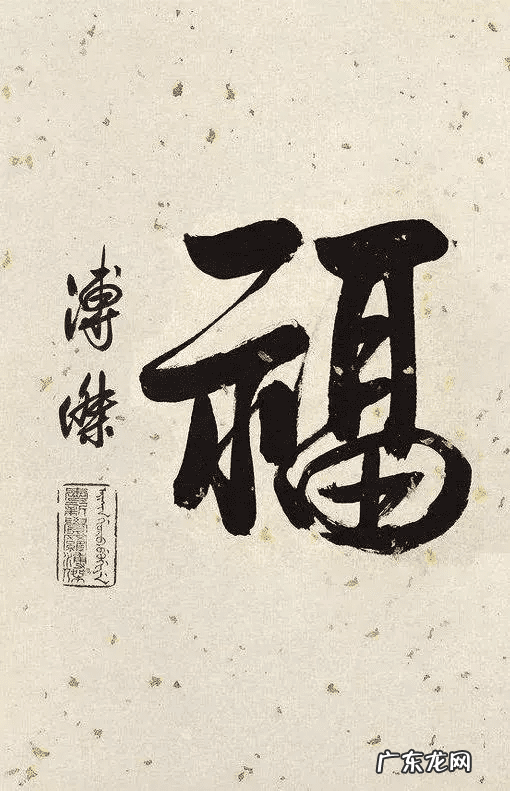 福
溥
傑
广东龙网